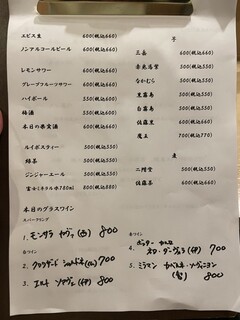 エビス生 600(税込660)
ノンアルコールビール 600(税込660)
レモンサワー 600(税込660)
グレープフルーツサワー 600(税込660)
ハイボール 550(税込600)
梅酒 550(税込600)
本日の果実酒 600(税込660)
ルイボスティー 500(税込550)
緑茶 500(税込550)
ジンジャーエール 500(税込550)
富士ミネラル水780ml 800(税込880)
芋
三岳 600(税込660)
赤兎馬 600(税込660)
なかむら 600(税込660)
黒霧島 550(税込600)
白霧島 550(税込600)
佐藤黒 600(税込660)
魔王 700(税込770)
麦
二階堂 500(税込550)
佐藤麦 600(税込660)
本日のグラスワイン
スパークリング
1. モンサラ カヴァ (白) 800
白ワイン
2. シャルドネ 700
3. 800
赤ワイン
4. 700
5. ミラマン カベルネ・ソーヴィニヨン
800